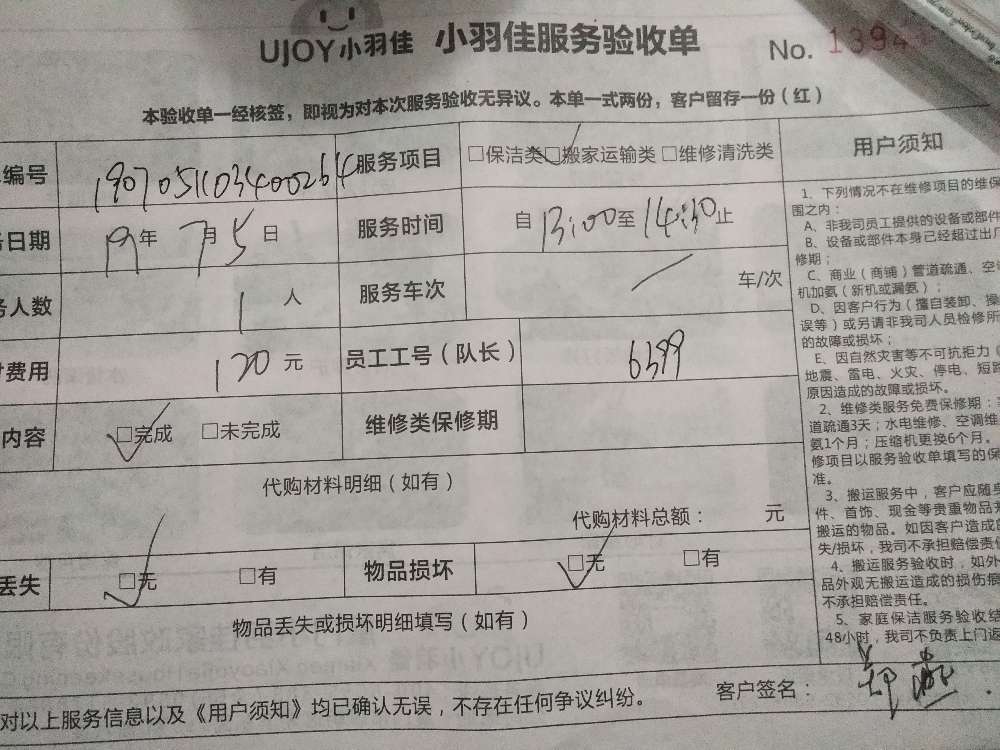 UJOY小羽佳 小羽佳服务验收单 No. 1394
本验收单一经核签，即视为对本次服务验收无异议。本单一式两份，客户留存一份（红）
编号 1907051103400264 服务项目 □保洁类 □搬家运输类 □维修清洗类
日期 19年 7月 5日 服务时间 自 13:00 至 14:30 止
务人数 1 人 服务车次 / 车/次
费用 120 元 员工工号（队长） 6399
内容 □完成 □未完成 维修类保修期
代购材料明细（如有）
代购材料总额： 元
丢失 □无 □有 物品损坏 □无 □有
物品丢失或损坏明细填写（如有）
对以上服务信息以及《用户须知》均已确认无误，不存在任何争议纠纷。 客户签名：
用户须知
1、下列情况不在维修项目的维保
围之内：
A、非我司员工提供的设备或部件
B、设备或部件本身已经超过出厂
修期；
C、商业（商铺）管道疏通、空调
机加氨（新机或漏氨）；
D、因客户行为（擅自装卸、操
误等）或另请非我司人员检修所
的故障或损坏；
E、因自然灾害等不可抗拒力（
地震、雷电、火灾、停电、短路
原因造成的故障或损坏。
2、维修类服务免费保修期：
道疏通3天；水电维修、空调维
氨1个月；压缩机更换6个月。
修项目以服务验收单填写的保
准。
3、搬运服务中，客户应随身
件、首饰、现金等贵重物品
搬运的物品。如因客户造成
失/损坏，我司不承担赔偿责任
4、搬运服务验收时，如外
品外观无搬运造成的损伤痕
不承担赔偿责任。
5、家庭保洁服务验收结
48小时，我司不负责上门返